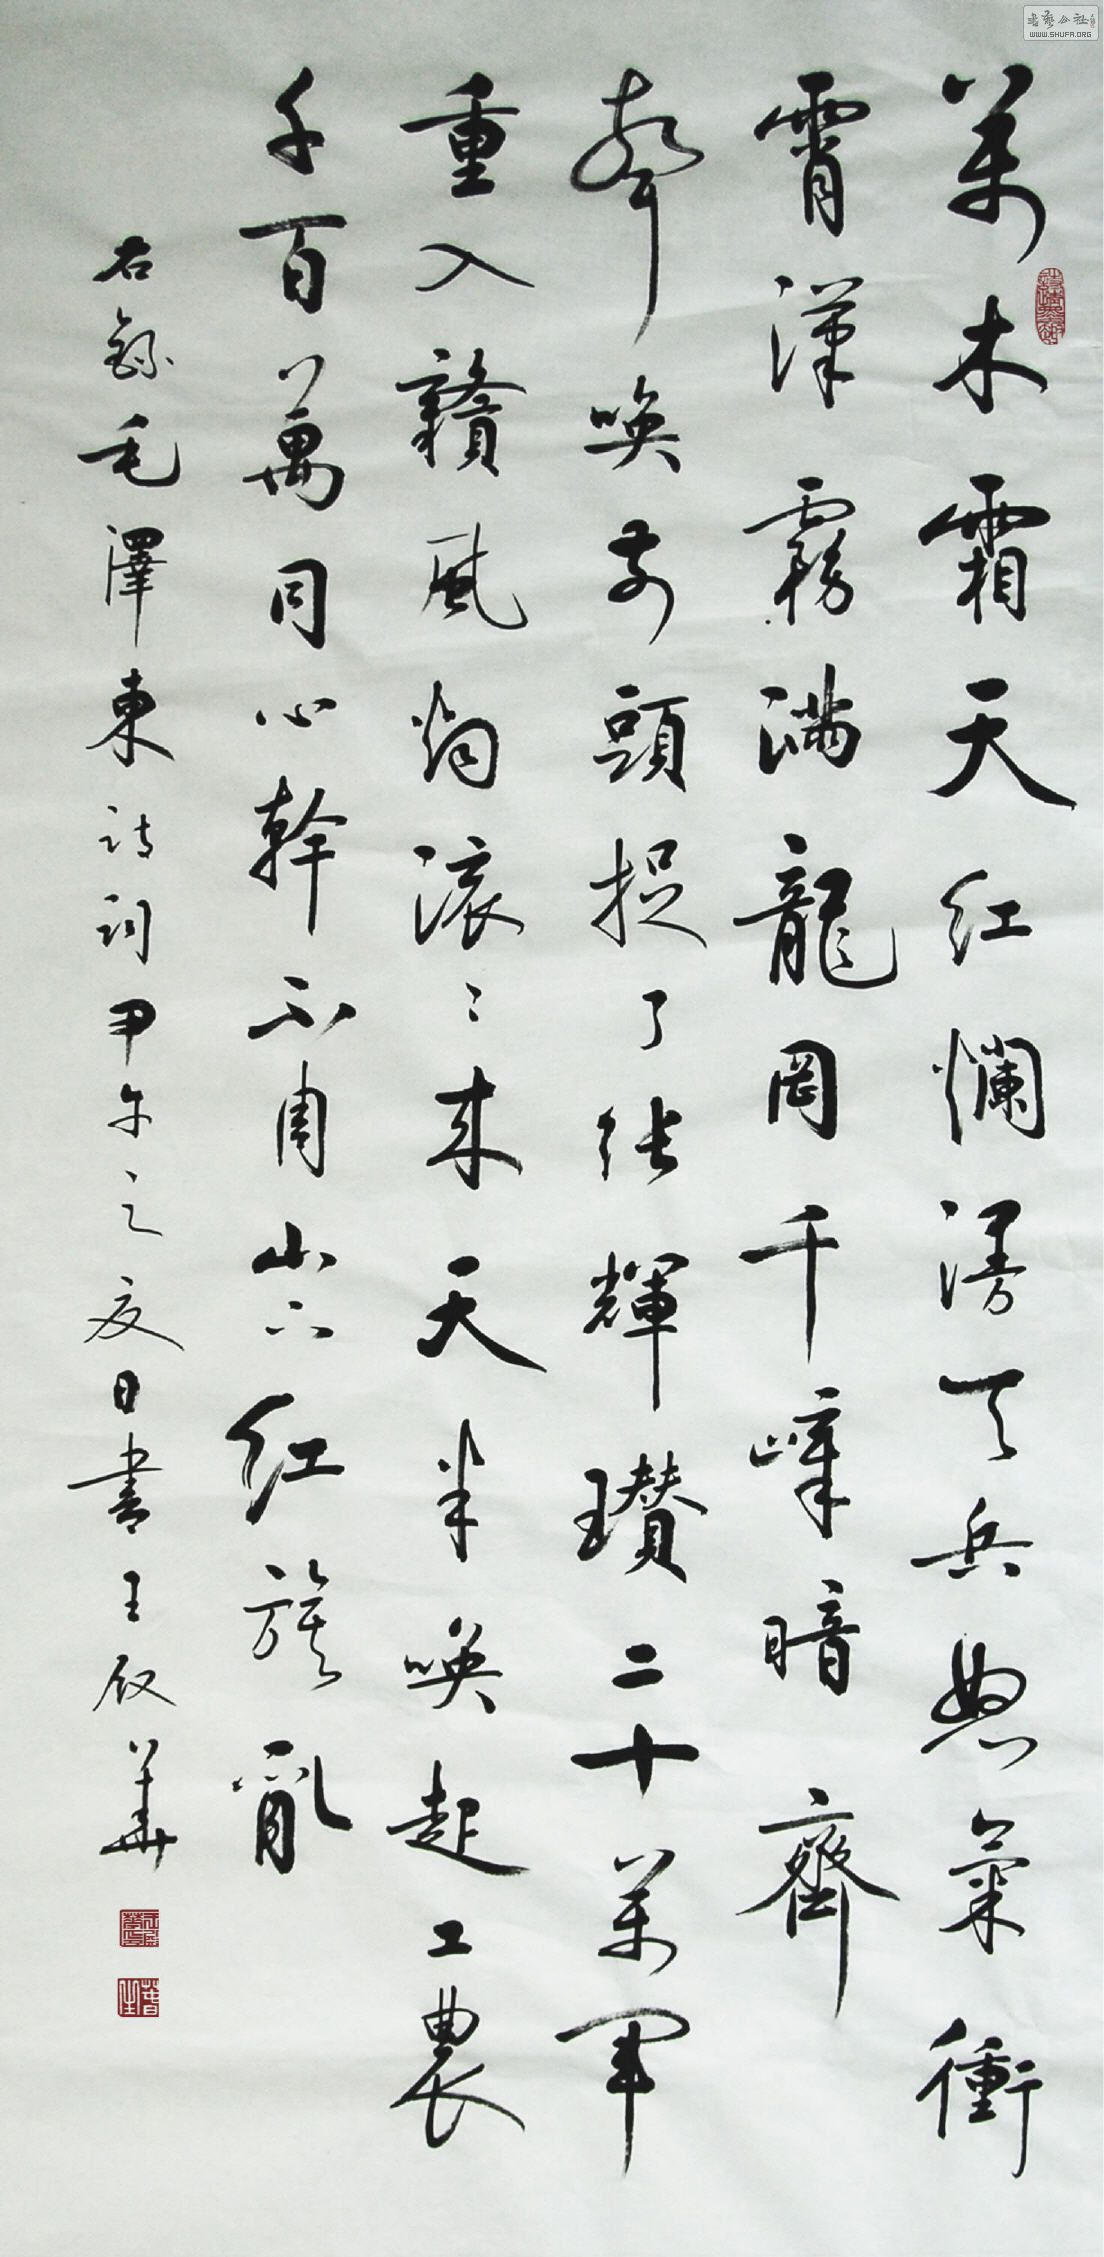 萬木霜天紅爛漫天兵怒氣衝
霄漢霧滿龍岡千嶂暗齊
聲喚前頭捉了張輝瓚二十萬軍
重入贛風煙滾〻來天半喚起工農
千百萬同心幹不周山下紅旗亂
右錄毛澤東詩詞甲午之夏日書王華
書藝公社
WWW.SHUFA.ORG